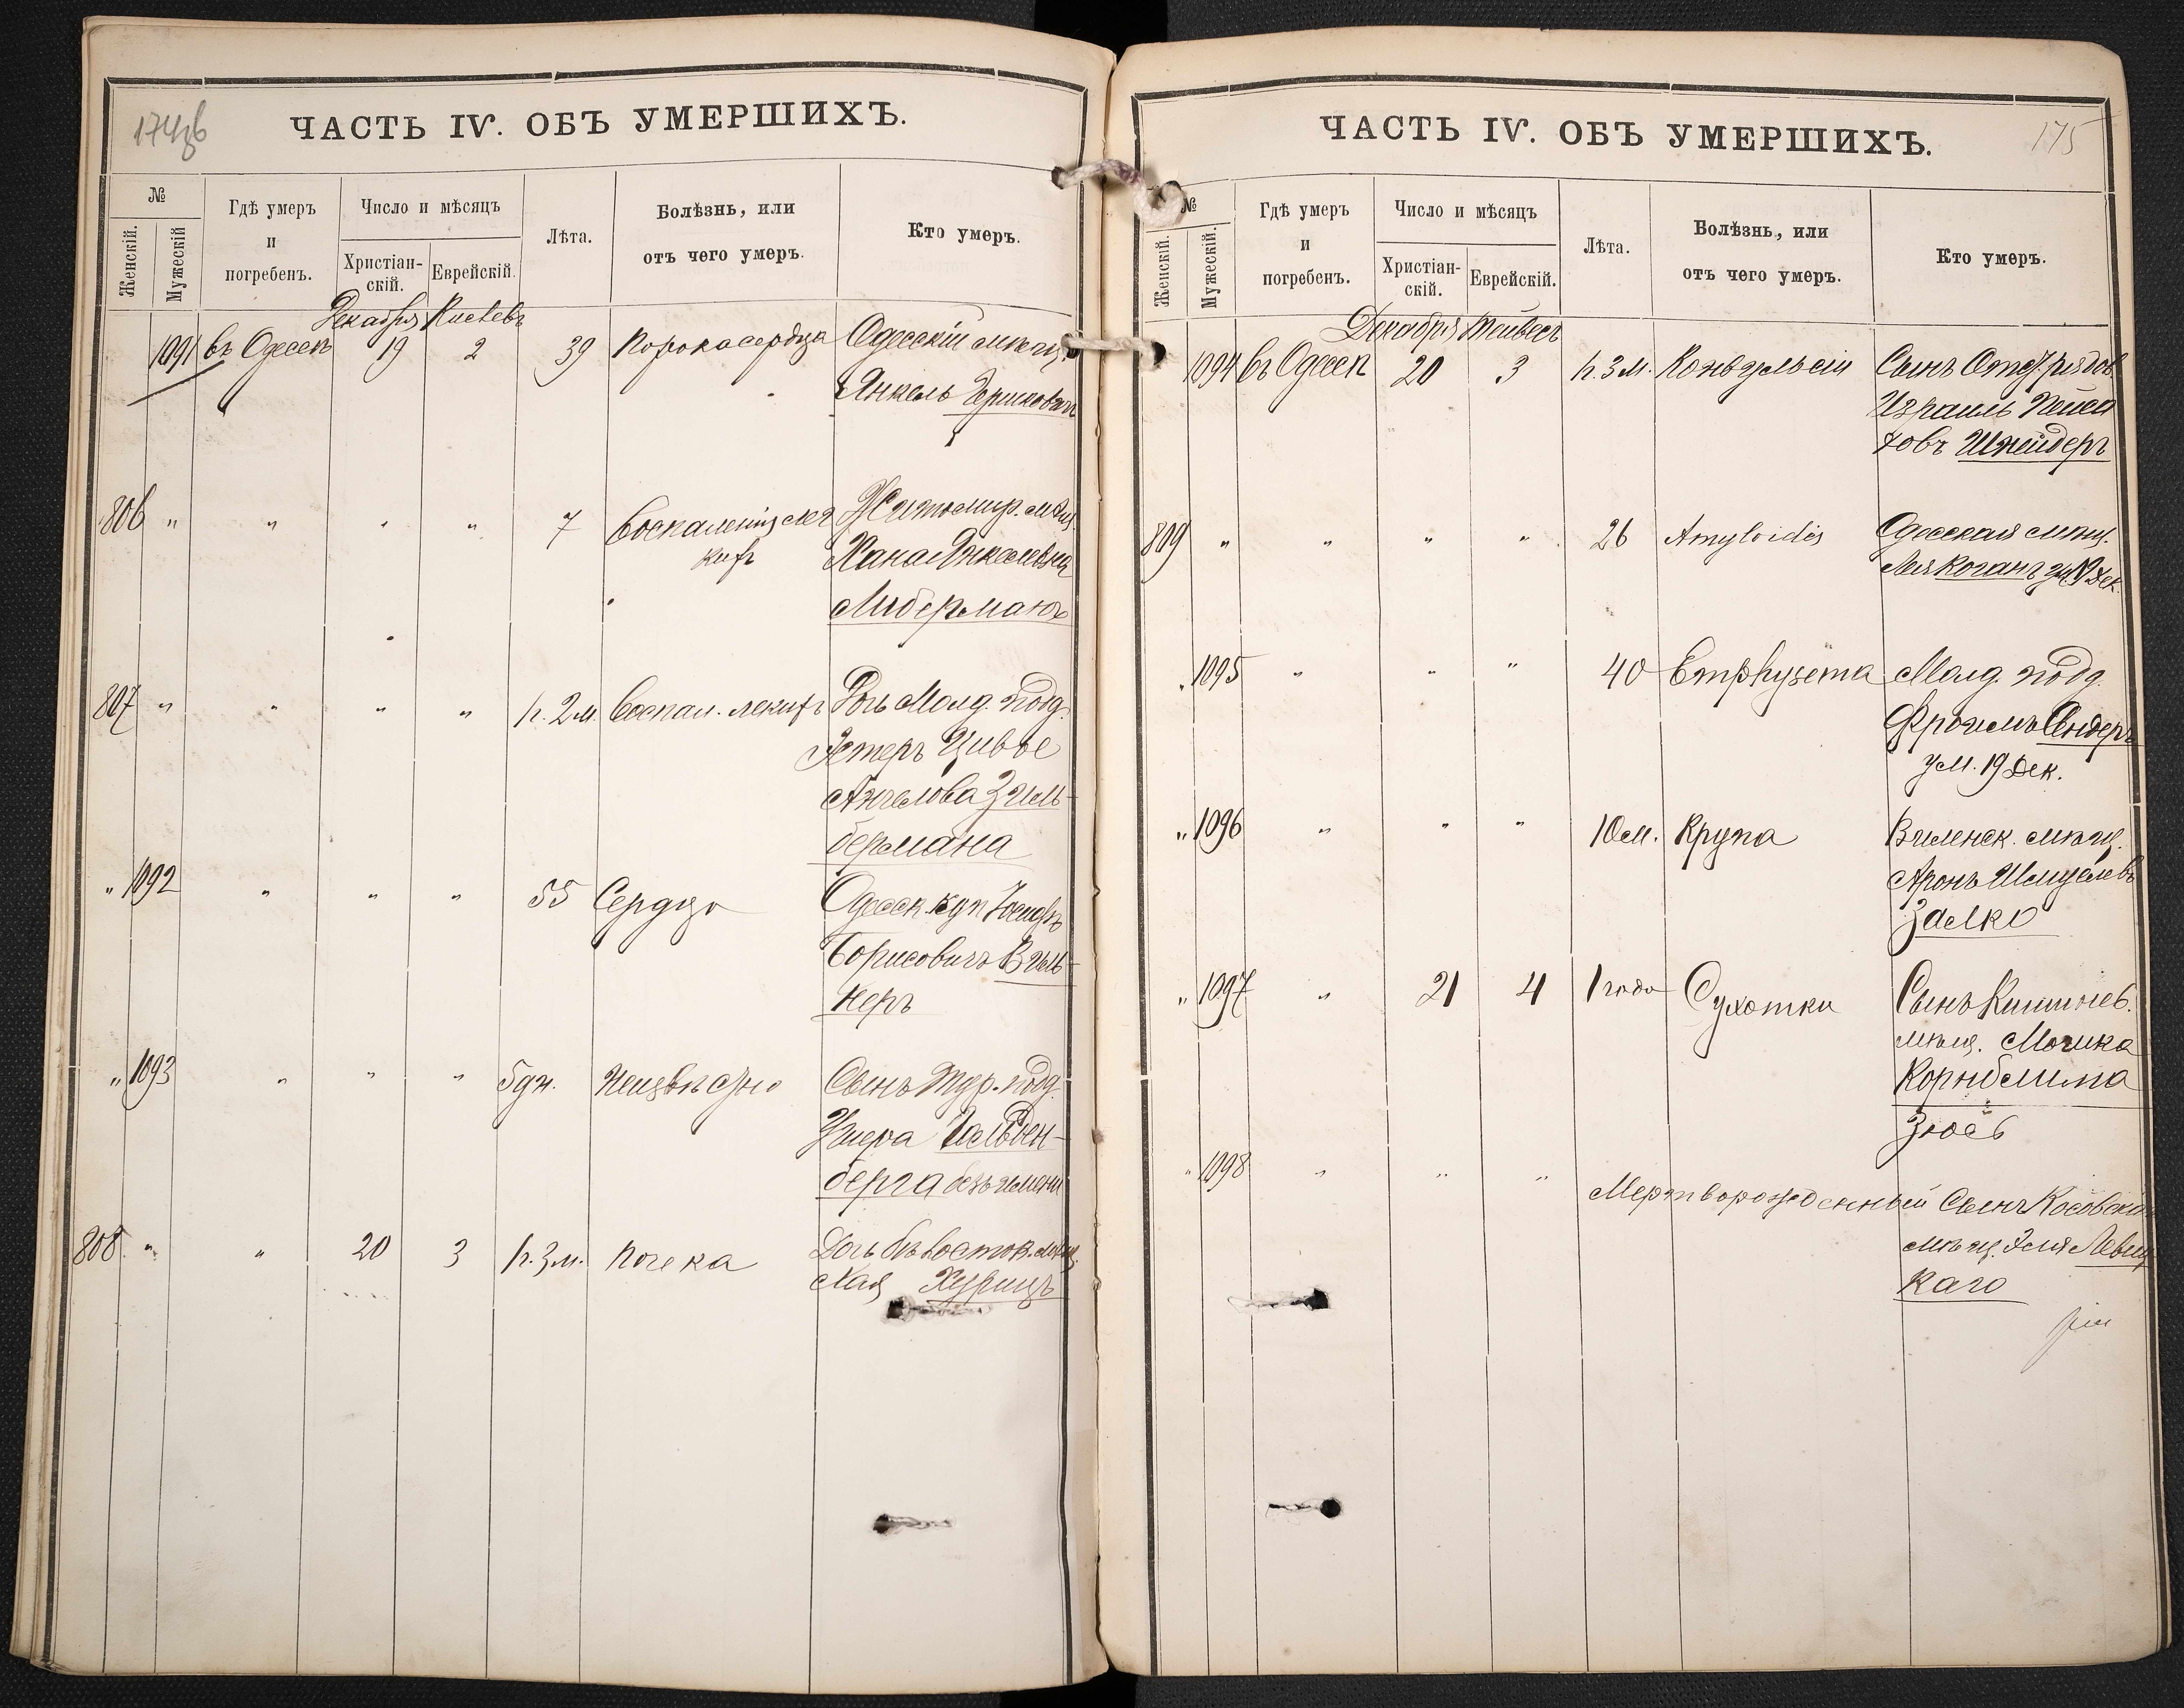 174об
ЧАСТЬ IV. ОБЪ УМЕРШИХЪ.
№
Женскій.
Мужескій
Гдѣ умеръ
и
погребенъ.
Число и мѣсяцъ
Христіан-
скій.
Еврейскій.
Лѣта.
Болѣзнь, или
отъ чего умеръ.
Кто умеръ.
Декабря Кислевъ
1091 въ Одессѣ 19 2 39 Порока сердца Одесскій мѣщ.
Янкель Гершковичъ
806 " " " " 7 Воспаленія лег Житомир. мѣщ.
кихъ Хана Янкелевна
Либерманъ
807 " " " " п. 2 м. Воспал. легкихъ Дочь Молд. подд.
Эстеръ Цивье
Анчелова Зиль-
бермана
" 1092 " " " 55 Сердца Одесск. куп Іосифъ
Борисовичъ Виль-
неръ
" 1093 " " " 5 дн. Неизвѣстно Сынъ Тур. подд.
Гельден-
берга безъ имени
808 " " 20 3 п. 3 м. Почека Дочь Бѣлосток. мѣщ.
Хая Хурицъ
175
ЧАСТЬ IV. ОБЪ УМЕРШИХЪ.
№
Женскій.
Мужескій.
Гдѣ умеръ
и
погребенъ.
Число и мѣсяцъ
Христіан-
скій.
Еврейскій.
Лѣта.
Болѣзнь, или
отъ чего умеръ.
Кто умеръ.
Декабря Тейвесъ
1094 въ Одессѣ 20 3 п. 3 м. Конвульсіи Сынъ Отст. рядов
Израиль Пейса
ховъ Шнейдеръ
809 " " " " 26 Amyloidis Одесская мѣщ.
Лея Коганъ Дек.
" 1095 " " " 40 Emphysema Молд. подд.
Фроимъ Сендеръ
ум. 19 Дек.
" 1096 " " " 10 м. Крупа Виленск. мѣщ.
Аронъ Шмулевъ
Залко
" 1097 " 21 4 1 года Сухотки Сынъ Кишинев.
мѣщ. Мошка
Корнблита
Зюсь
" 1098 " " " Мертворожденный Сынъ Косовскаго
мѣщ. Эля Левиц
каго